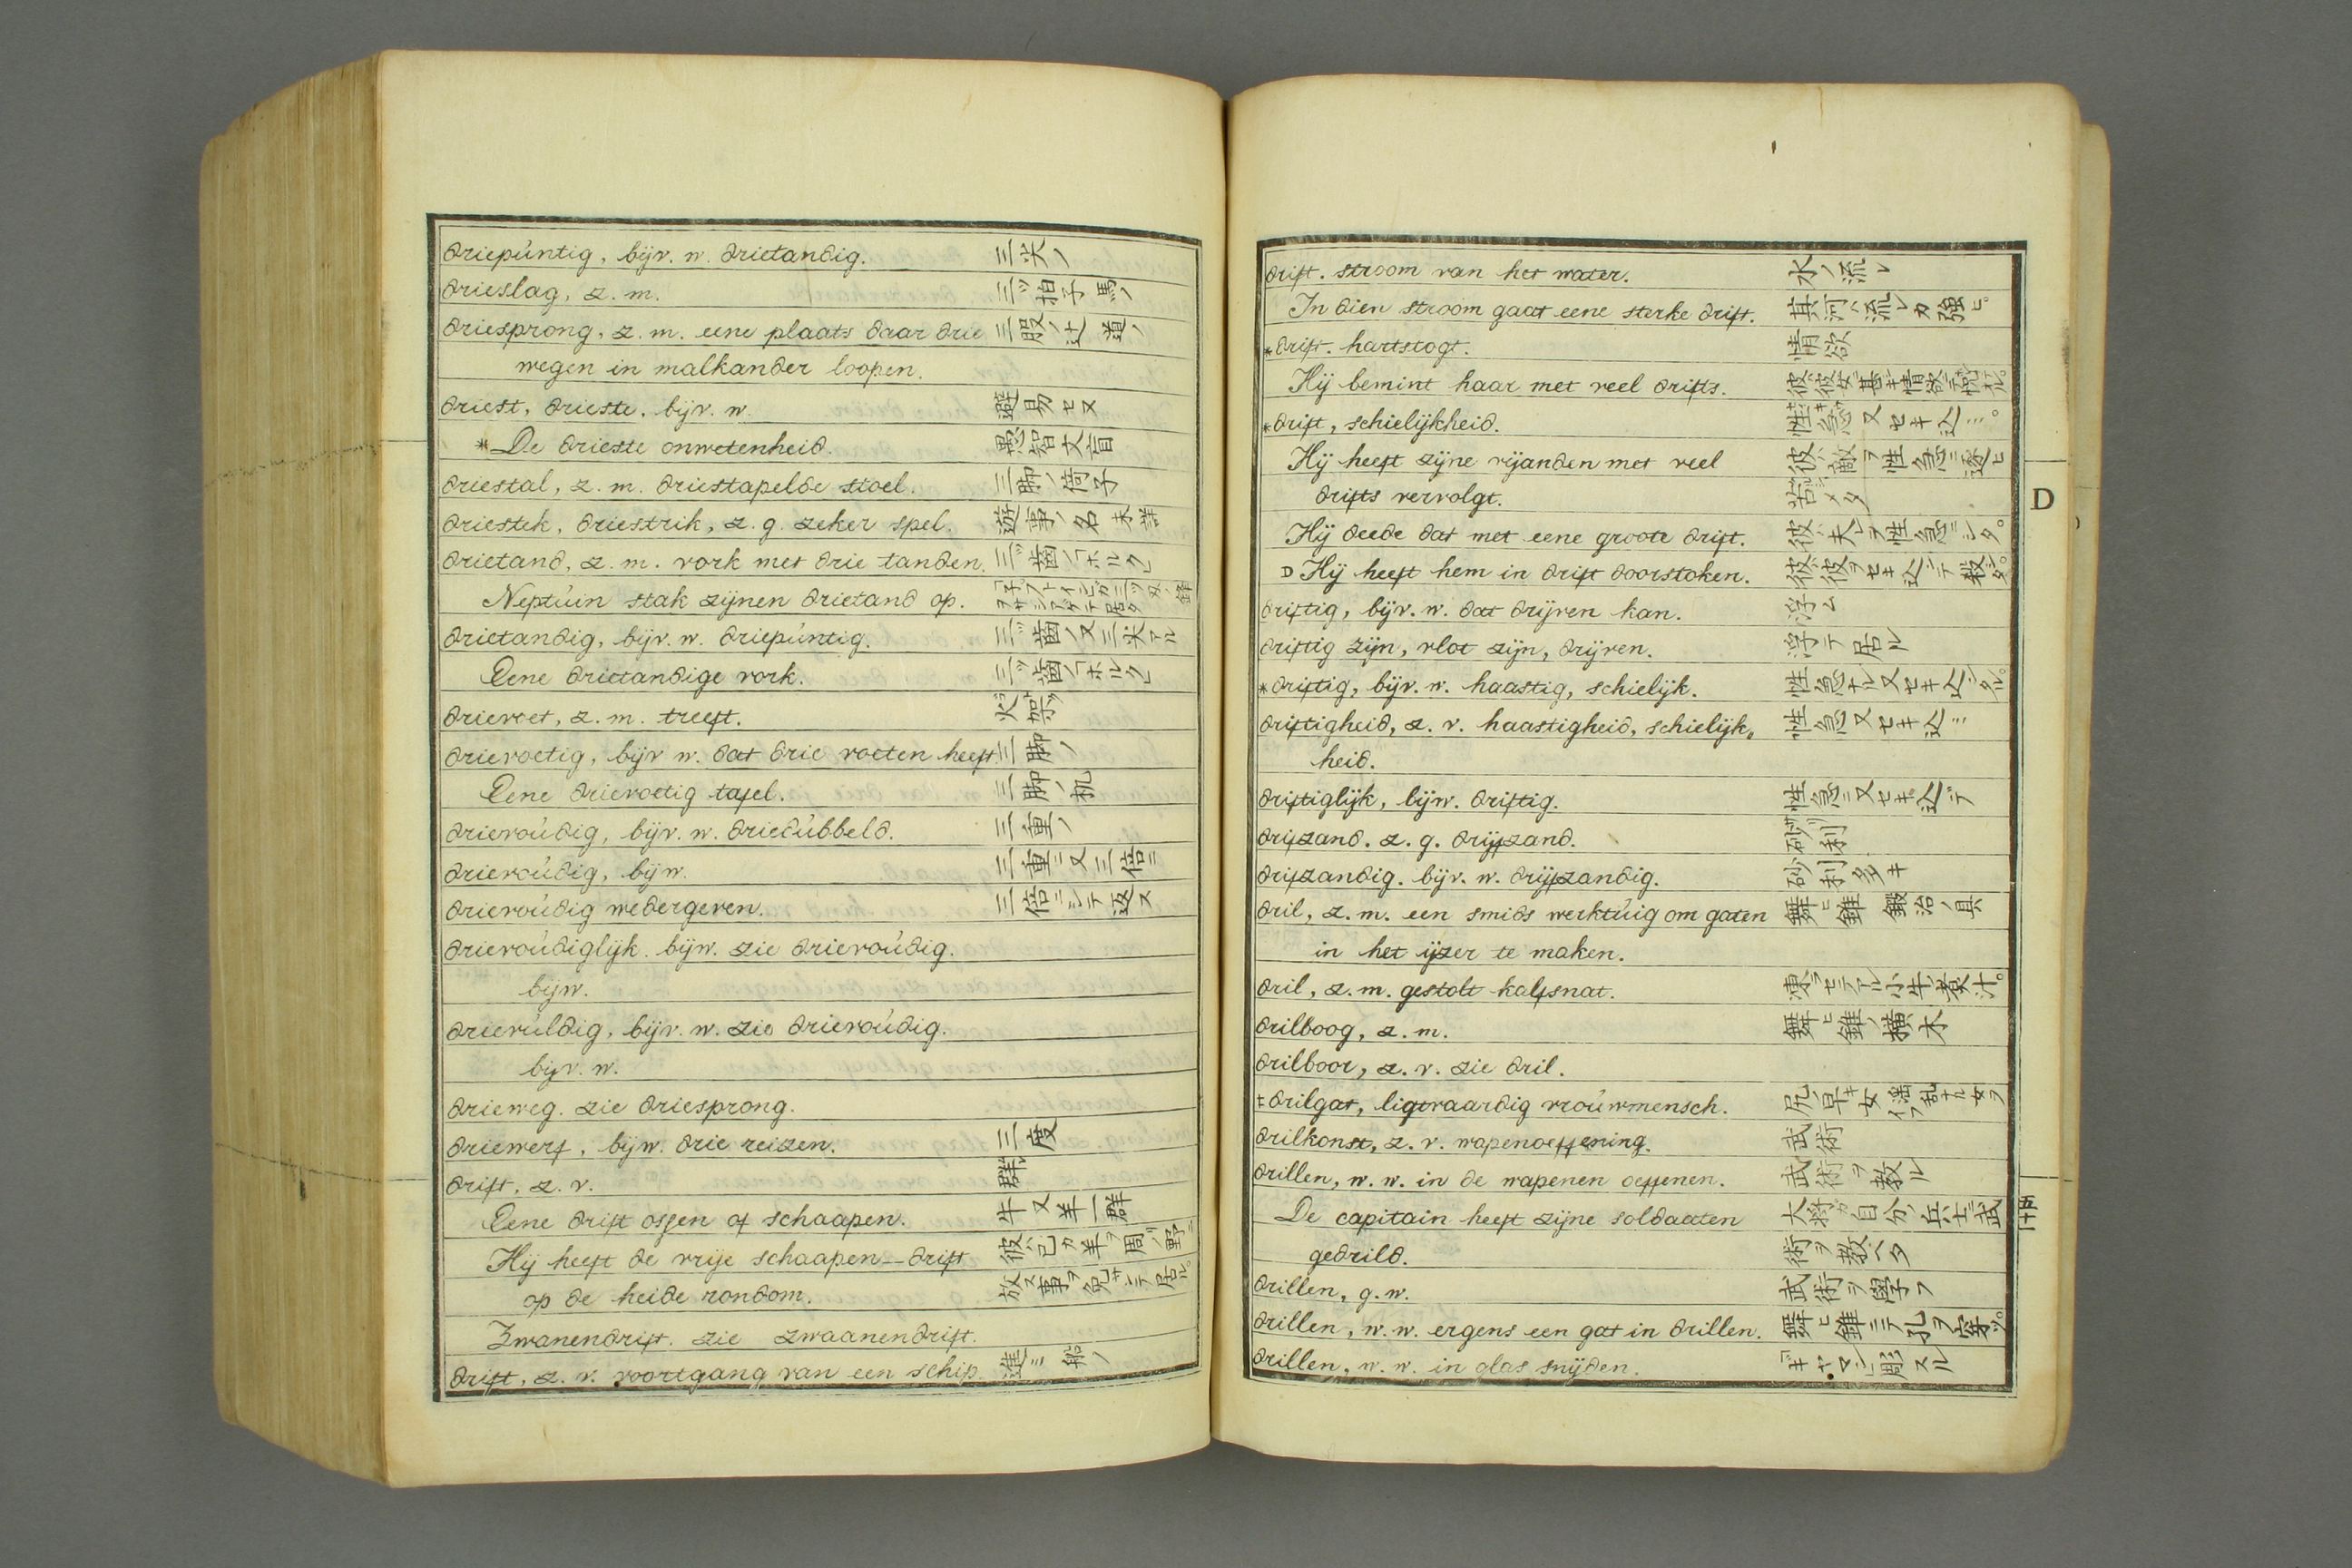 driepúntig, bijv. w. drietandig. 三尖ノ
drieslag, z. m. 三ツ拍子馬ノ
driesprong, z. m. eene plaats daar drie 三叚ノ辻道ノ
wegen in malkander loopen.
driest, drieste, bijv. w. 避易セヌ
*De drieste onwetenheid. 愚智文盲
driestal, z. m. driestapelde stoel. 三脚ノ倚子
driestek, driestrik, z. g. zeker spel. 遊事ノ名未詳
drietand, z. m. vork met drie tanden. 三ツ歯ノホルク
Neptúin stak zijnen drietand op.
drietandig, bijv. w. driepúntig. 三ツ歯ノ又三尖アル
Eene drietandige vork. 三ツ歯ノホルク
drievoet, z. m. treeft. 火架
drievoetig, bijv w. dat drie voeten heeft. 三脚ノ
Eene drievoetig tafel. 三脚ノ机
drievoúdig, bijv. w. driedúbbeld. 三重ノ
drievoúdig, bijw. 三重ニ又三倍ニ
drievoúdig wedergeven. 三倍ニシテ返ス
drievoúdiglijk. bijw. zie drievoúdig.
bijw.
drievúldig, bijv. w. zie drievoúdig.
bijv. w.
drieweg. zie driesprong.
driewerf, bijw. drie reizen. 三度
drift, z. v. 群
Eene drift ossen of schaapen. 牛又羊一群
Hij heeft de vrije schaapen--drift 彼ハ己カ羊ヲ周ノ野ニ
op de heide rondom. 放ス事ヲ免サレテ居ル。
Zwanendrift. zie zwaanendrift.
drift, z. v. voortgang van een schip. 進ミ船ノ
drift. stroom van het water. 水ノ流レ
In dien stroom gaat eene sterke drift. 其河ハ流レカ強ヒ。
*drift. hartstogt. 情欲
Hij bemint haar met veel drifts.
*drift, schielijkheid. 性急又セキ込ミ。
Hij heeft zijne vijanden met veel 彼ハ敵ヲ性急ニ逐ヒ
drifts vervolgt. 苦メタ
Hij deede dat met eene groote drift. 彼ハ夫レヲ性急ニシタ。
D Hij heeft hem in drift doorstoken. 彼ハ彼ヲセキ込ンテ殺シタ。
driftig, bijv. w. dat drijven kan. 浮ム
driftig zijn, vlot zijn, drijven. 浮テ居ル
*driftig, bijv. w. haastig, schielijk. 性急ナル又セキ込ンタル。
driftigheid, z. v. haastigheid, schielijk„ 性急又セキ込ミ
heid.
driftiglijk, bijw. driftig. 性急ニ又セキ込テ
drifzand. z. g. drijfzand. 砂利
drifzandig. bijv. w. drijfzandig. 砂利多キ
dril, z. m. een smids werktúig om gaten 舞ヒ錐 鍛冶ノ具
in het ijzer te maken.
dril, z. m. gestolt kalfsnat. 凍ラセテアル小牛ノ煮汁。
drilboog, z. m. 舞ヒ錐ノ横木
drilboor, z. v. zie dril.
‡drilgat, ligtvaardig vroúwmensch.
drilkonst, z. v. wapenoeffening. 武術
drillen, w. w. in de wapenen oeffenen. 武術ヲ教ル
De capitain heeft zijne soldaaten 大将カ自分ノ兵士ニ武
gedrild. 術ヲ教ヘタ
drillen, g. w. 武術ヲ學フ
drillen, w. w. ergens een gat in drillen. 舞ヒ錐ニテ孔ヲ穿ツ。
drillen, w. w. in glas snijden. ギヤマンニ彫スル
D